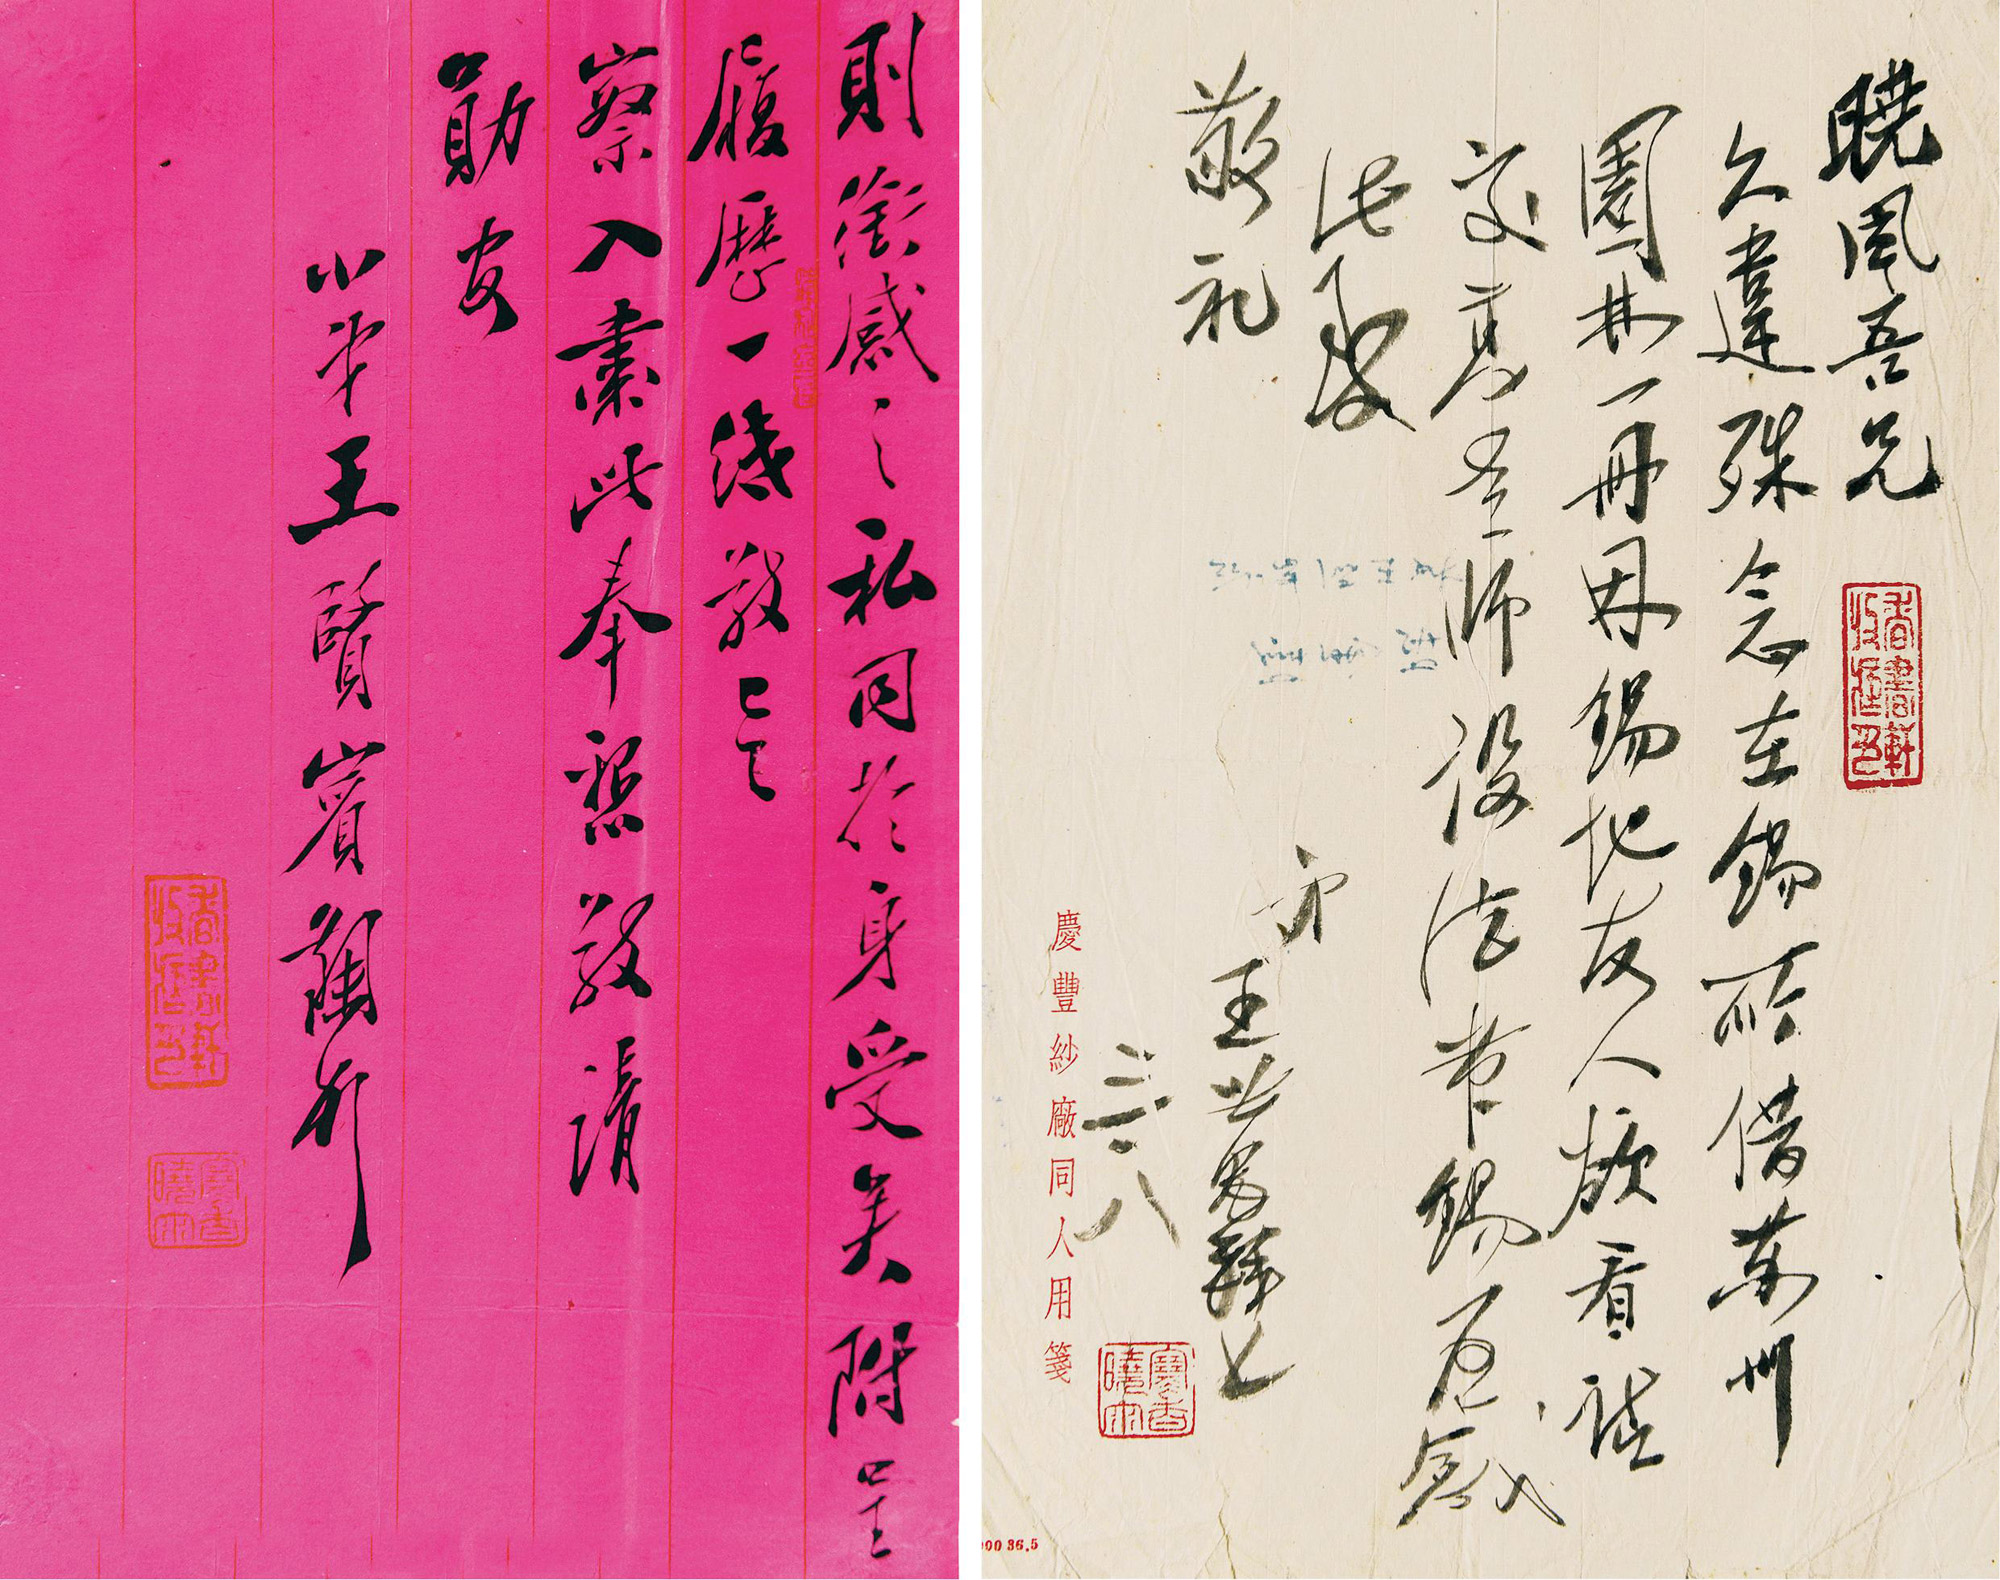 曉風吾兄
久違殊念在錫所借蘇州
園林一冊因錫地友人欲看請
交 吾師設法帶錫為感
此致
敬礼
弟王
三.八
慶豐紗廠同人用箋
000 36.5
則銜感之私同於身受矣附呈
履歷一 敬乞
察入肅此奉懇敬請
勛安
小弟王賢賓頓首